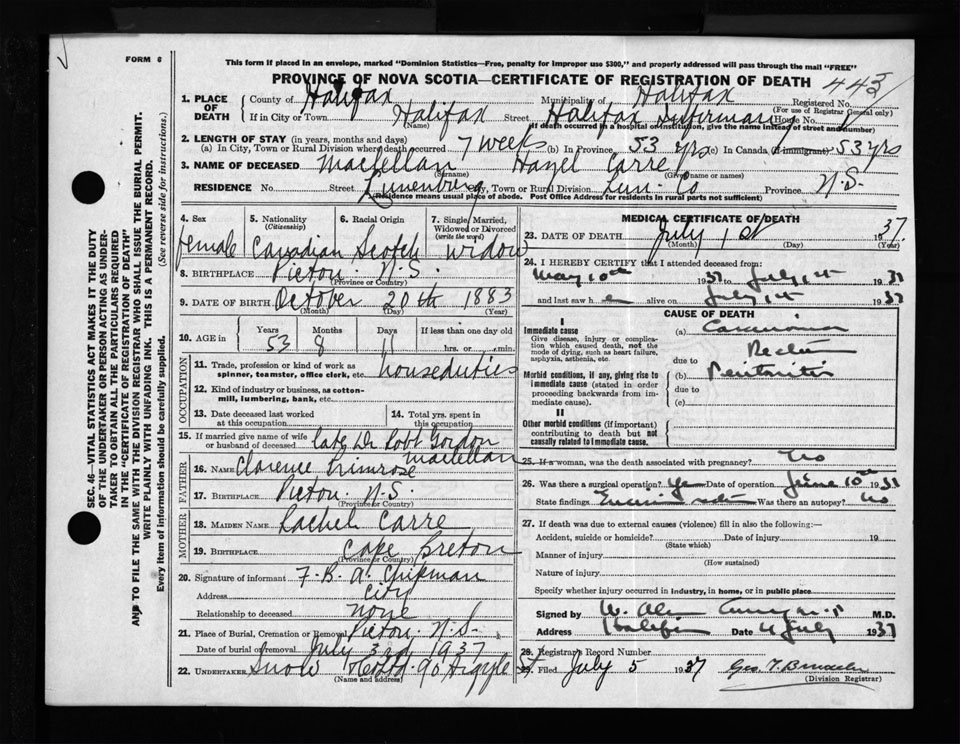 FORM 6
This form if placed in an envelope, marked "Dominion Statistics—Free, penalty for improper use $300," and properly addressed will pass through the mail "FREE"
PROVINCE OF NOVA SCOTIA—CERTIFICATE OF REGISTRATION OF DEATH 443
1. PLACE OF DEATH County of Halifax Municipality of Halifax Registered No.
(For use of Registrar General only)
If in City or Town Halifax Street Halifax Infirmary House No.
(Name) (If death occurred in a hospital or institution, give the name instead of street and number)
2. LENGTH OF STAY (in years, months and days)
(a) In City, Town or Rural Division where death occurred 7 weeks (b) In Province 53 yrs (c) In Canada (if immigrant) 53 yrs
3. NAME OF DECEASED Maclellan Hazel Carre
(Surname) (Given name or names)
RESIDENCE No. Street Lunenburg City, Town or Rural Division Lun. Co Province N.S.
(Residence means usual place of abode. Post Office Address for Residents in rural parts not sufficient)
4. Sex female
5. Nationality (Citizenship) Canadian
6. Racial Origin Scotch
7. Single, Married, Widowed or Divorced (write the word) Widow
8. BIRTHPLACE Pictou. N.S.
(Province or Country)
9. DATE OF BIRTH October 20th 1883
(Month) (Day) (Year)
10. AGE in Years 53 Months 8 Days 11 If less than one day old hrs. or min.
OCCUPATION
11. Trade, profession or kind of work as spinner, teamster, office clerk, etc. houseduties
12. Kind of industry or business, as cotton-mill, lumbering, bank, etc.
13. Date deceased last worked at this occupation
14. Total yrs. spent in this occupation
15. If married give name of wife or husband of deceased late Dr Robt Gordon Maclellan
FATHER
16. NAME Clarence Primrose
17. BIRTHPLACE Pictou. N.S.
MOTHER
18. MAIDEN NAME Rachel Carre
19. BIRTHPLACE Cape Breton
(Province or Country)
20. Signature of informant F. B. A. Chipman
Address City
Relationship to deceased none
21. Place of Burial, Cremation or Removal Pictou N.S.
Date of burial or removal July 3rd 1937
22. UNDERTAKER Snow 90 Argyle St
(Name and address)
MEDICAL CERTIFICATE OF DEATH
23. DATE OF DEATH July 1st 1937
(Month) (Day) (Year)
24. I HEREBY CERTIFY that I attended deceased from:
May 10th 1937 to July 1st 1937
and last saw h er alive on July 1st 1937
CAUSE OF DEATH
I
Immediate cause (a) Carcinoma
Give disease, injury or complication which caused death, not the mode of dying, such as heart failure, asphyxia, asthenia, etc.
due to
Morbid conditions, if any, giving rise to immediate cause (stated in order proceeding backwards from immediate cause). (b) Peritonitis
due to
(c)
II
Other morbid conditions (if important) contributing to death but not causally related to immediate cause.
25. If a woman, was the death associated with pregnancy? No
26. Was there a surgical operation? Yes Date of operation June 10th 1937
State findings Was there an autopsy? No
27. If death was due to external causes (violence) fill in also the following:—
Accident, suicide or homicide? Date of injury 19
(State which)
Manner of injury
(How sustained)
Nature of injury
Specify whether injury occurred in industry, in home, or in public place
Signed by W. M.D.
Address Halifax Date 4 July 1937
28. Registrar's Record Number
29. Filed July 5 1937 Geo. T.
(Division Registrar)
SEC. 46—VITAL STATISTICS ACT MAKES IT THE DUTY
OF THE UNDERTAKER OR PERSON ACTING AS UNDER-
TAKER TO OBTAIN ALL THE PARTICULARS REQUIRED
IN THE "CERTIFICATE OF REGISTRATION OF DEATH"
AND TO FILE THE SAME WITH THE DIVISION REGISTRAR WHO SHALL ISSUE THE BURIAL PERMIT.
WRITE PLAINLY WITH UNFADING INK. THIS IS A PERMANENT RECORD.
Every item of information should be carefully supplied. (See reverse side for instructions.)